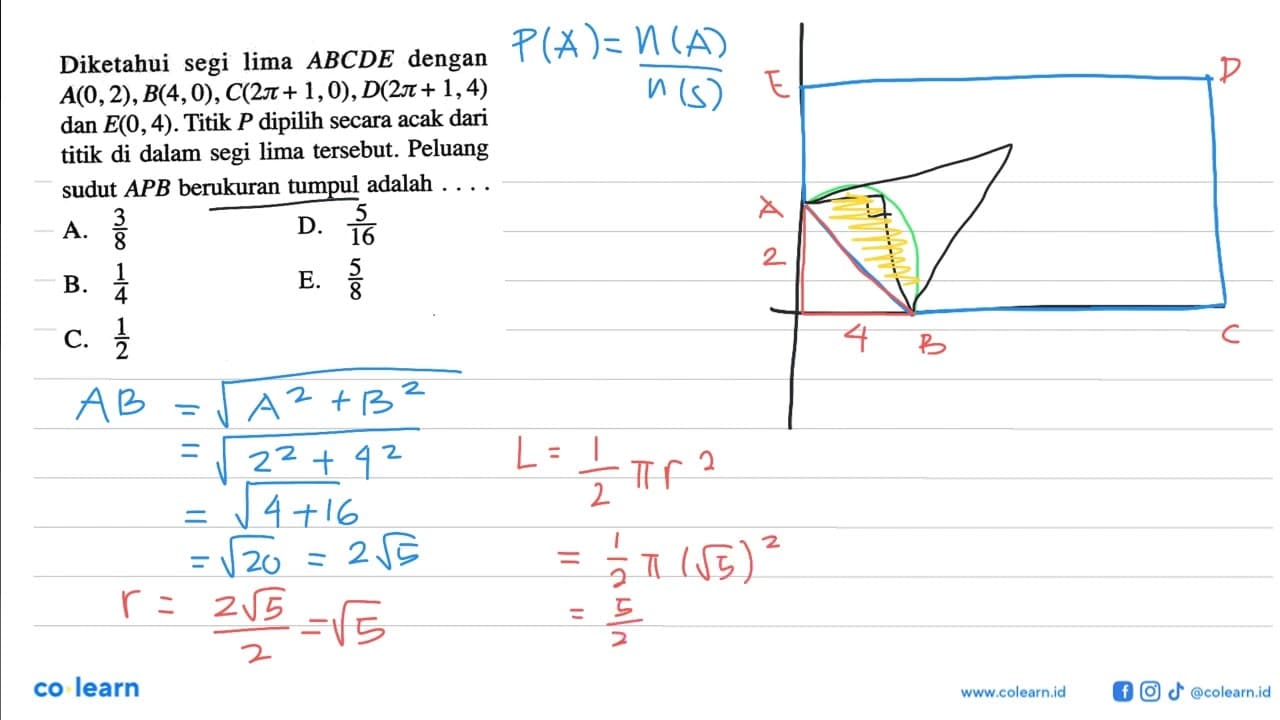 Diketahui segi lima ABCDE dengan
A(0, 2), B(4, 0), C(2π + 1, 0), D(2π + 1, 4)
dan E(0, 4). Titik P dipilih secara acak dari
titik di dalam segi lima tersebut. Peluang
sudut APB berukuran tumpul adalah . . . .
A. 3/8
B. 1/4
C. 1/2
D. 5/16
E. 5/8
P(A) = n(A)/n(S)
E
D
A
2
4
B
C
AB = √A² + B²
= √2² + 4²
= √4 + 16
= √20 = 2√5
r = 2√5/2 = √5
L = 1/2 π r²
= 1/2 π (√5)²
= 5/2
co learn
www.colearn.id
@colearn.id